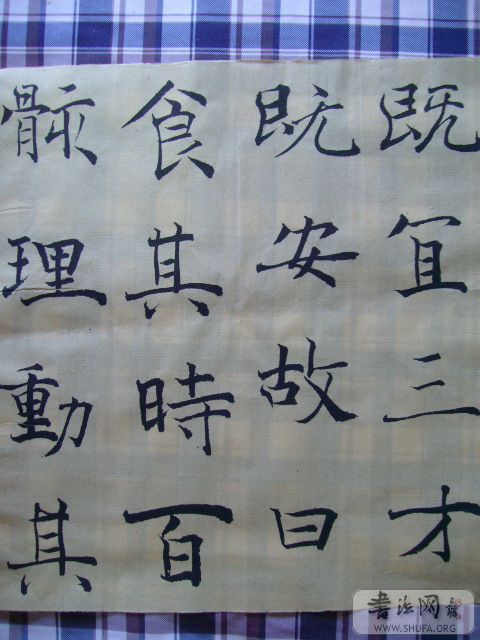 既宜三才
既安故曰
食其時百
骸理動其
書法网
WWW.SHUFA.ORG